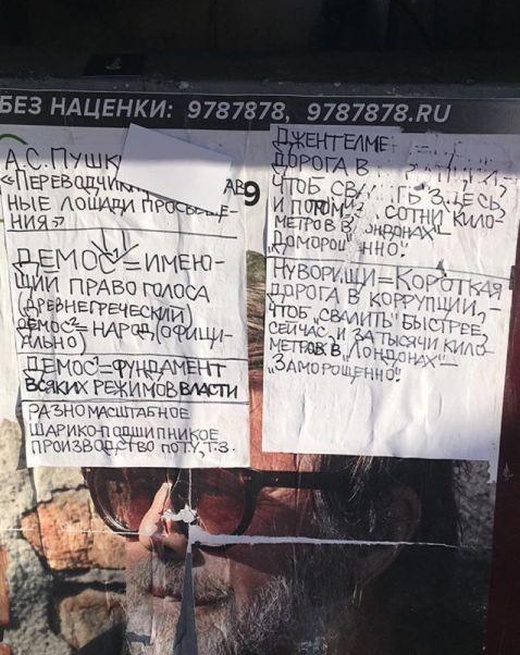 БЕЗ НАЦЕНКИ: 9787878, 9787878.RU
А.С.ПУШК
«ПЕРЕВОДЧИК
НЫЕ ЛОШАДИ ПРОСВЕЩЕ-
НИЯ»
ДЕМОС¹=ИМЕЮ-
ЩИЙ ПРАВО ГОЛОСА
(ДРЕВНЕГРЕЧЕСКИЙ)
ДЕМОС²=НАРОД (ОФИЦИ-
АЛЬНО)
ДЕМОС³=ФУНДАМЕНТ
ВСЯКИХ РЕЖИМОВ ВЛАСТИ
РАЗНОМАСШТАБНОЕ
ШАРИКО-ПОДШИПНИКОЕ
ПРОИЗВОДСТВО ПО Т.У, Т.З.
9
ДЖЕНТЕЛМЕ
ДОРОГА В
ЧТОБ ЗДЕСЬ,
И ПОТОМ СОТНИ КИЛО-
МЕТРОВ В „ЛОНДОНАХ“—
НУВОРИЩИ=КОРОТКАЯ
ДОРОГА В КОРРУПЦИИ,
ЧТОБ „СВАЛИТЬ“ БЫСТРЕЕ,
СЕЙЧАС, И ЗА ТЫСЯЧИ КИЛО-
МЕТРОВ В „ЛОНДОНАХ“—
„ЗАМОРОЩЕННО“.